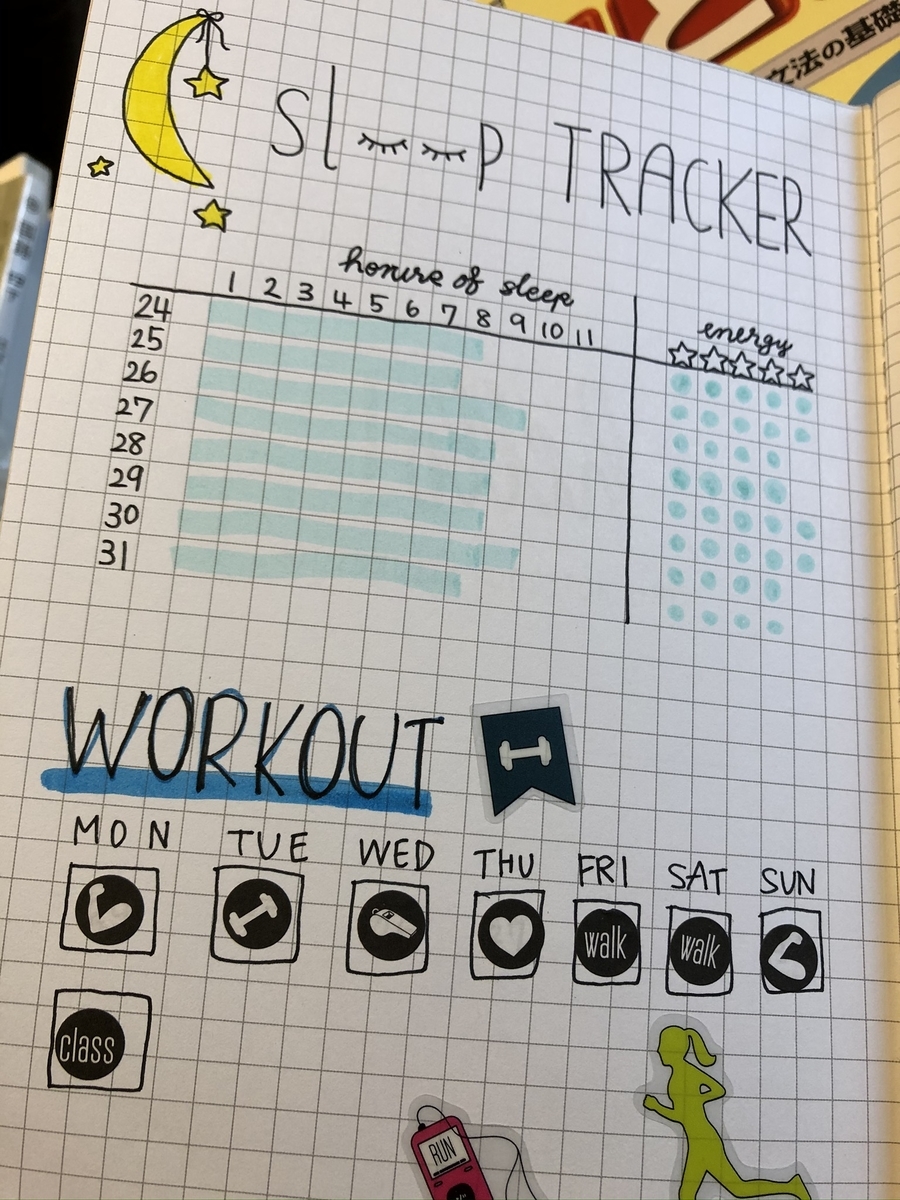 文法の基礎
sl p TRACKER
honure of sleep
1 2 3 4 5 6 7 8 9 10 11
energy
24
25
26
27
28
29
30
31
WORKOUT
MON TUE WED THU FRI SAT SUN
walk walk
class
RUN